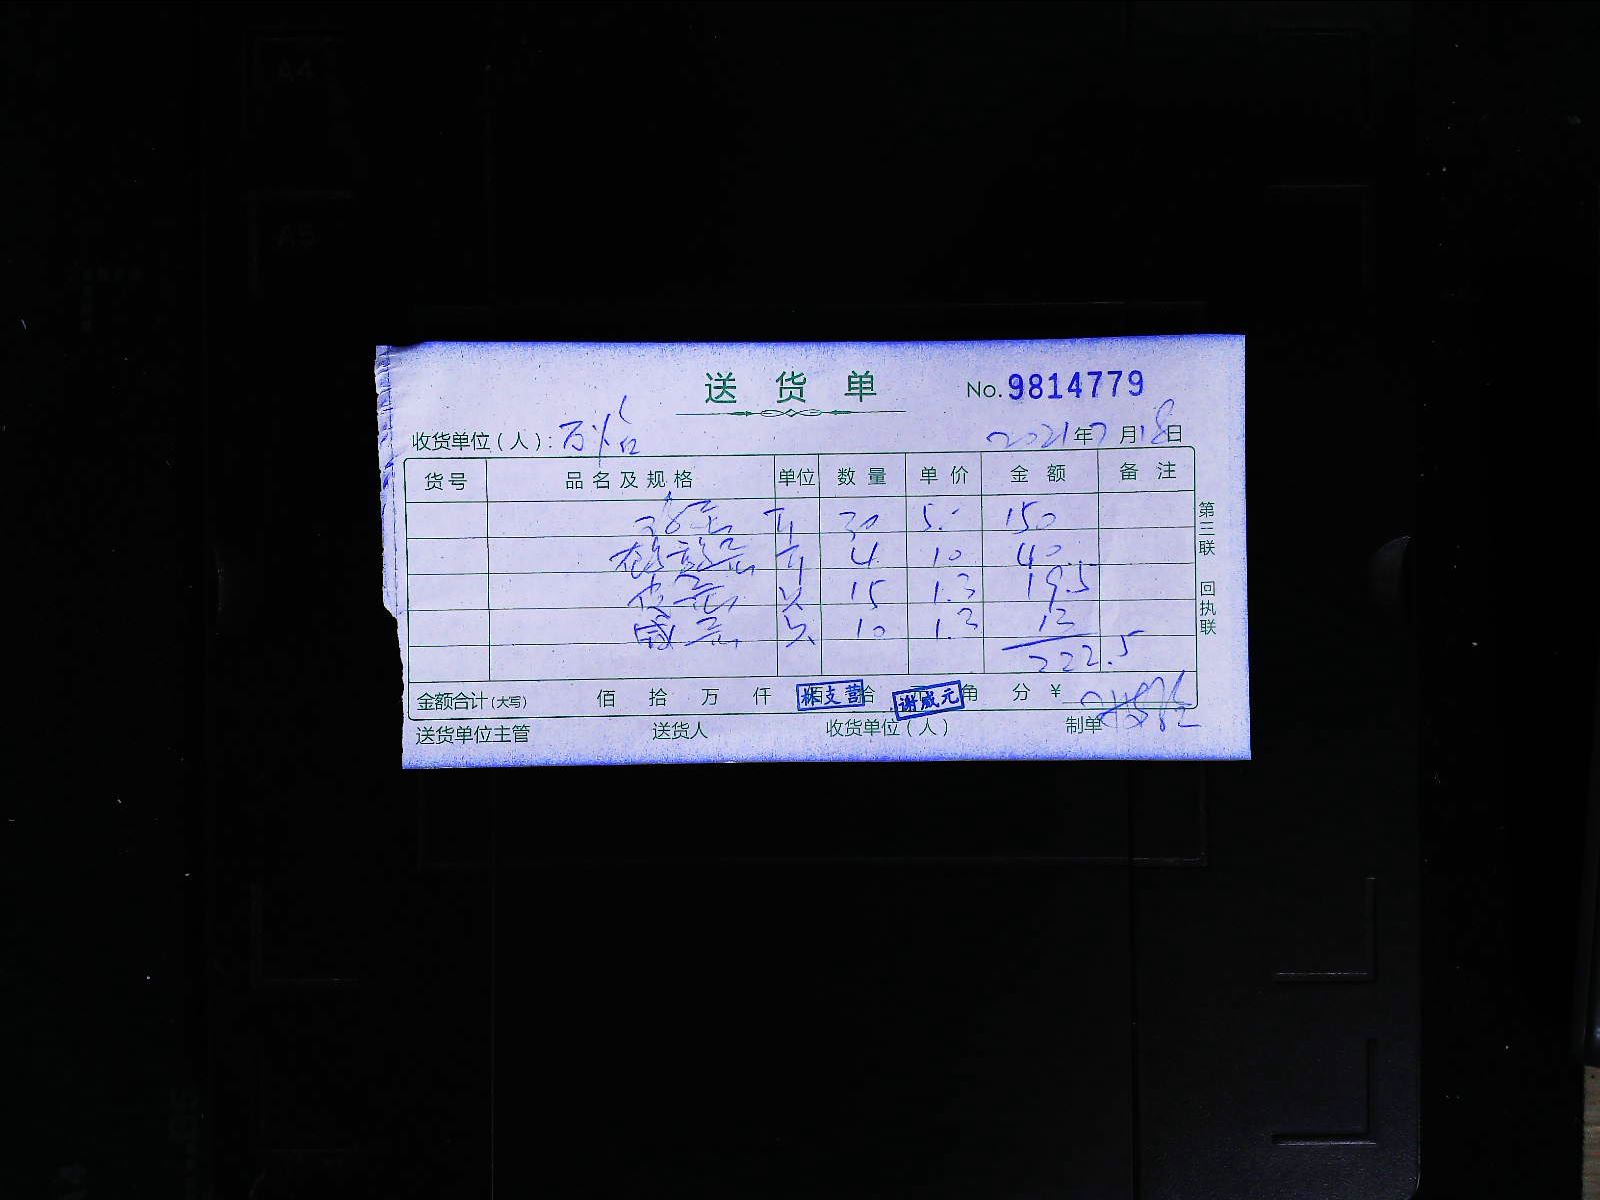 A4
A5
送 货 单 No. 9814779
收货单位（人）：万怡 2021年7月18日
货号 品名及规格 单位 数量 单价 金额 备注
斤 30 5.- 150
斤 4 10 40
皮蛋 只 15 1.3 19.5
咸蛋 只 10 1.3 13
222.5
第三联 回执联
金额合计(大写) 佰 拾 万 仟 佰 拾 元 角 分 ￥
林支营 谢咸元
送货单位主管 送货人 收货单位（人） 制单